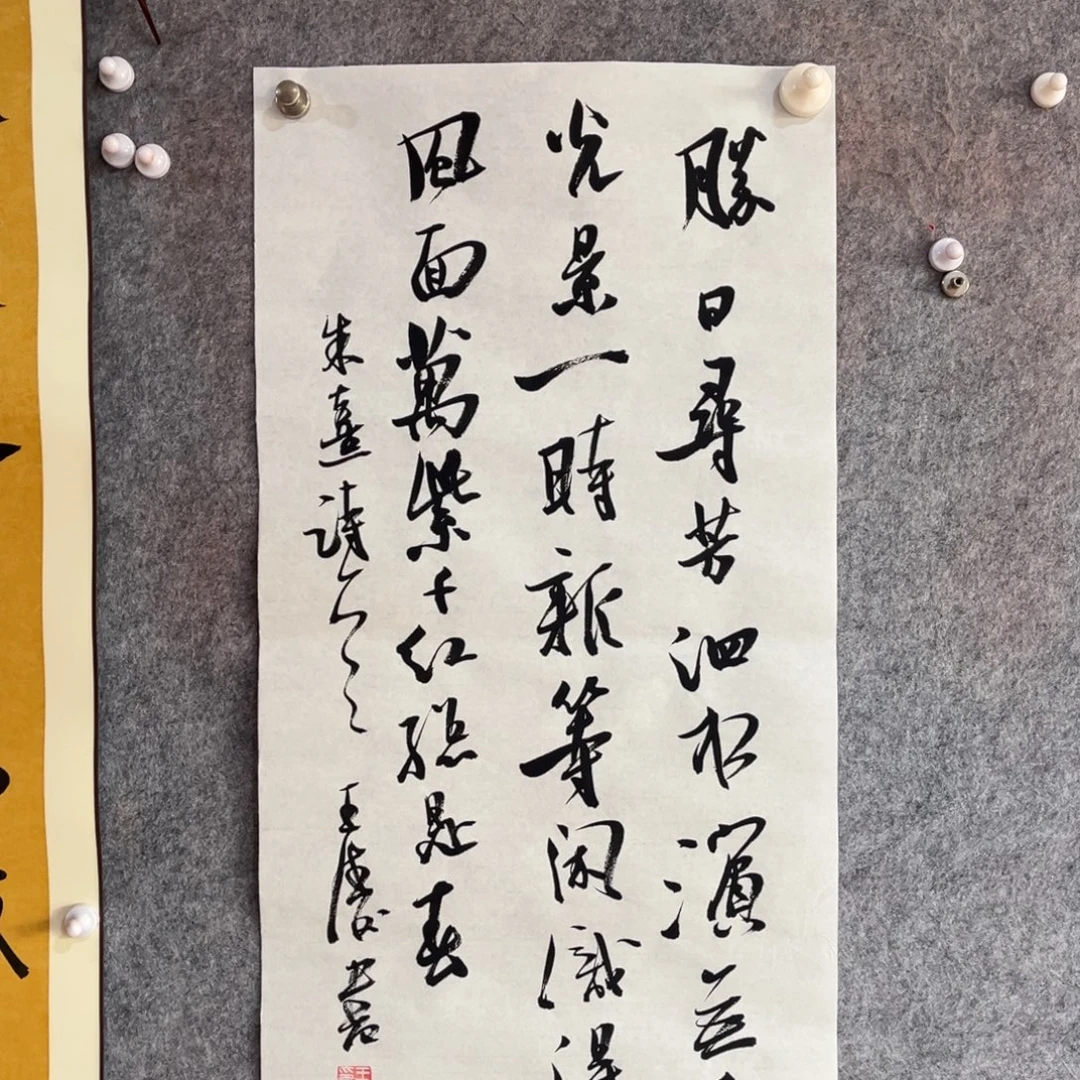 勝日尋芳泗水濱無
光景一時新等閑識得
風面萬紫千紅總是春
朱熹詩
王慶書